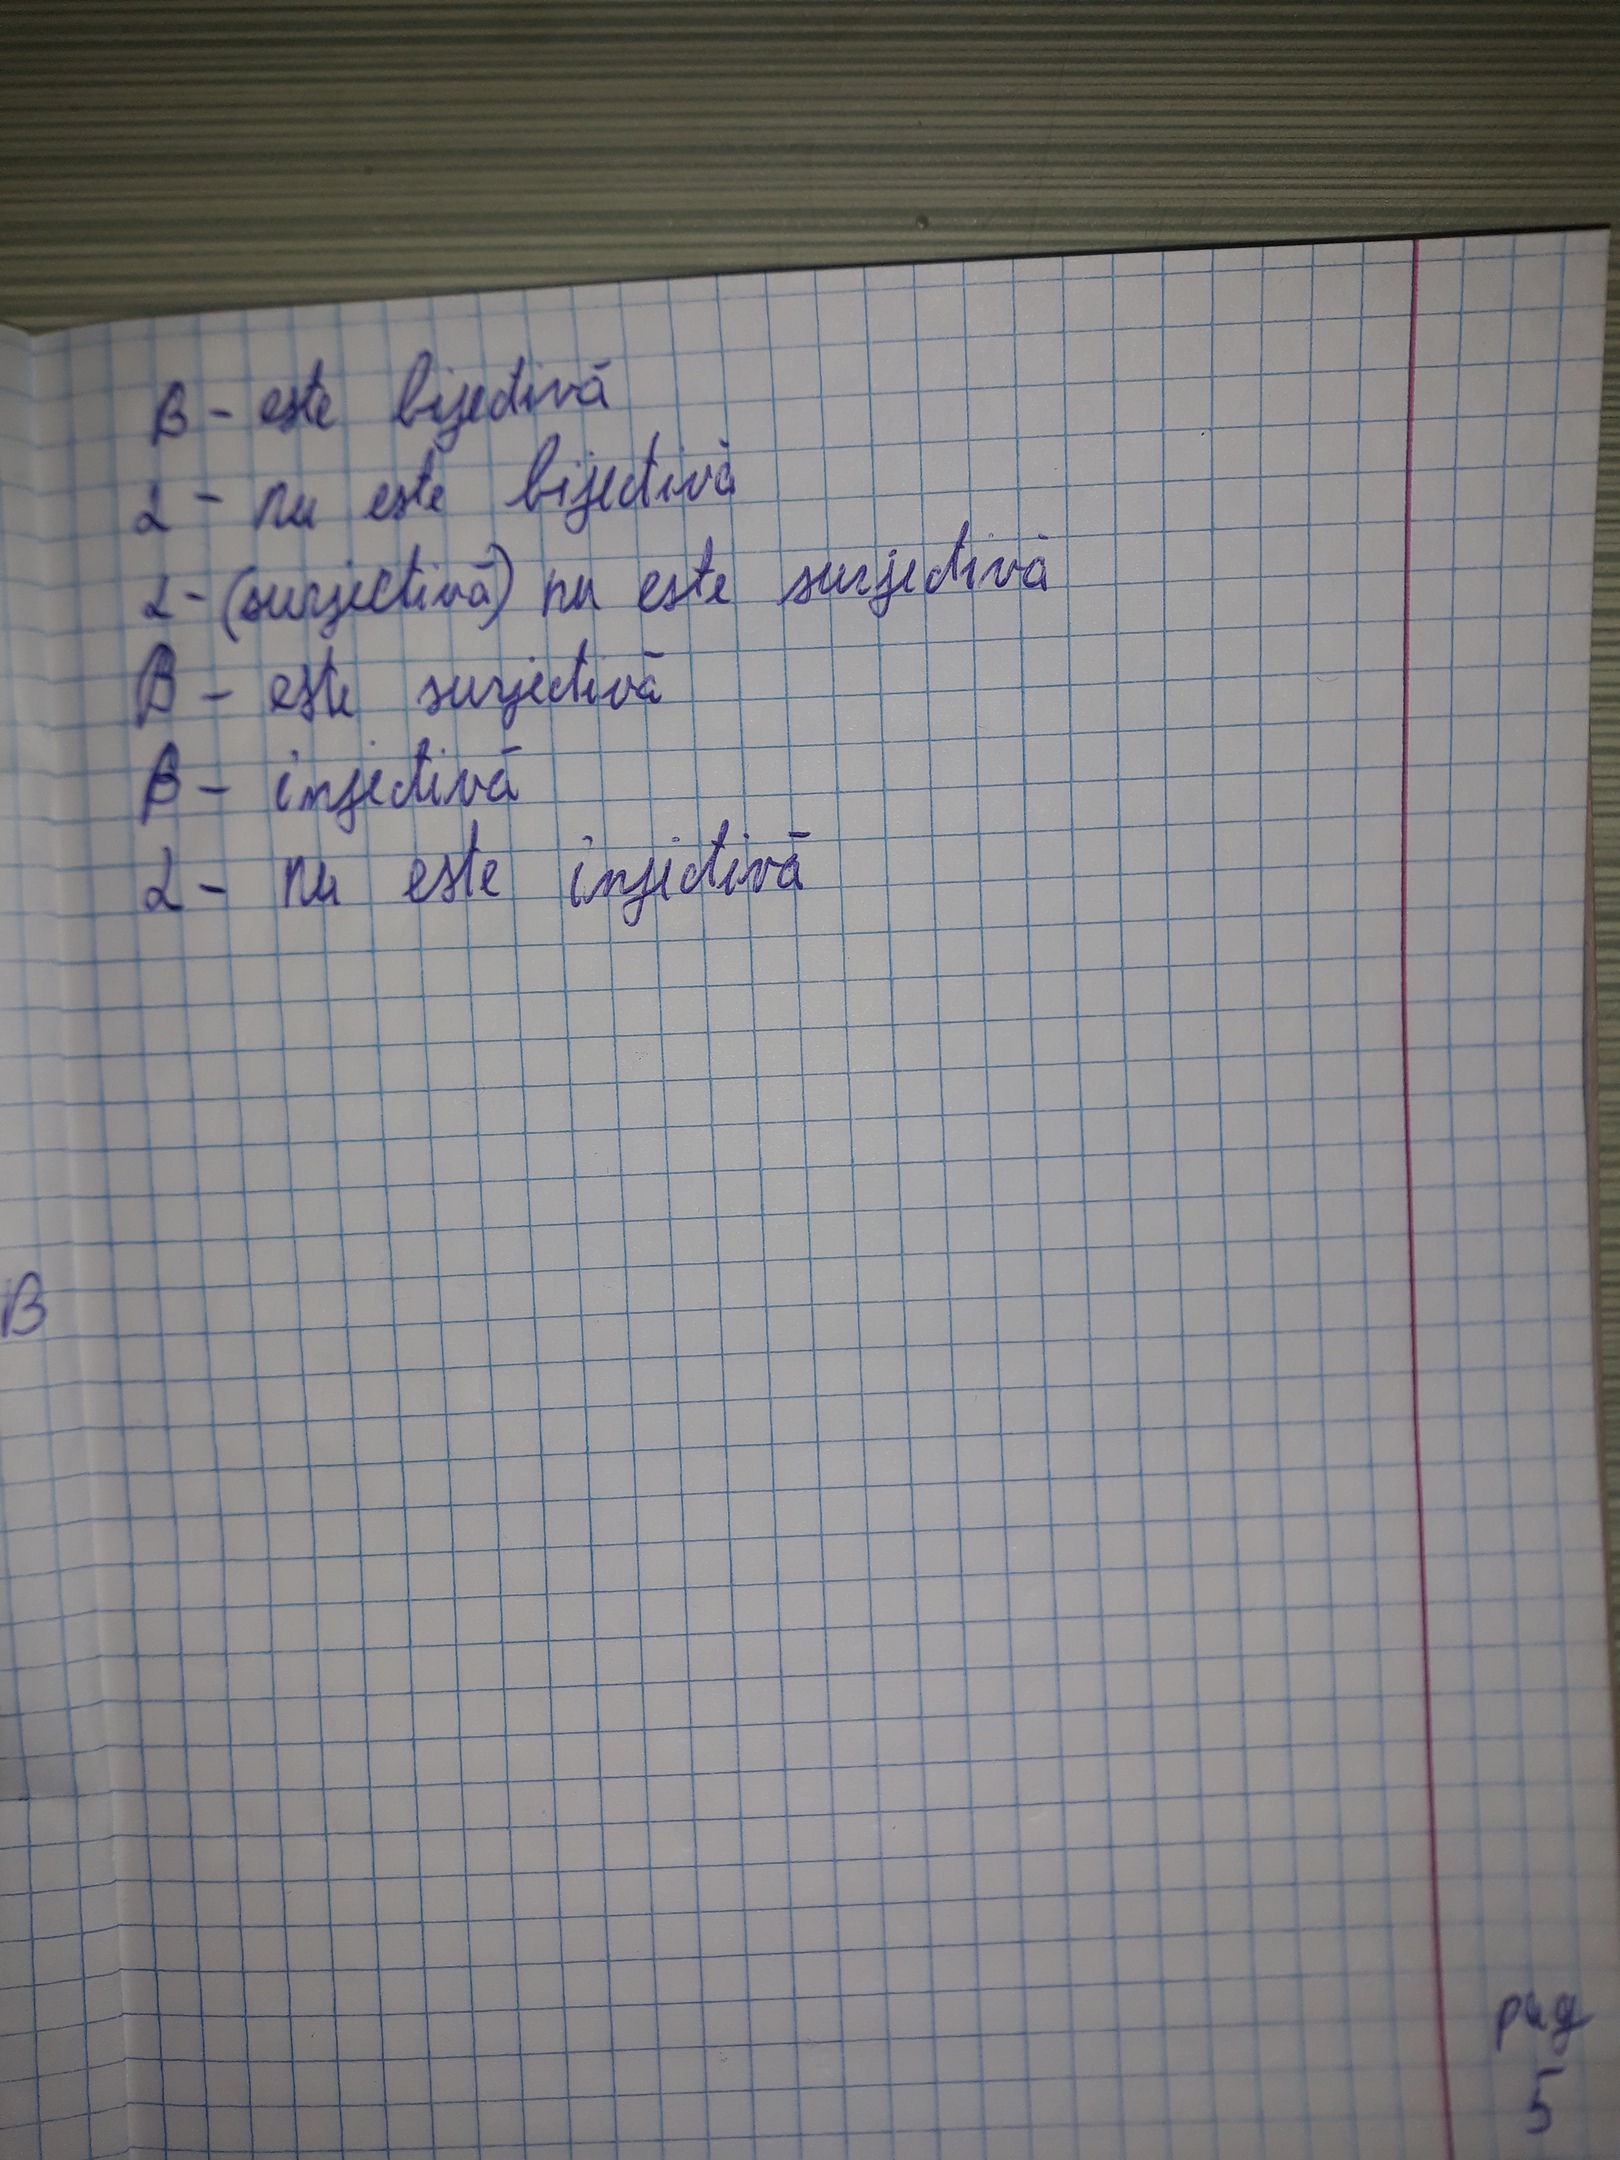 β - este bijectivă
α - nu este bijectivă
α - (surjectivă) nu este surjectivă
β - este surjectivă
β - injectivă
α - nu este injectivă
B
pag
5